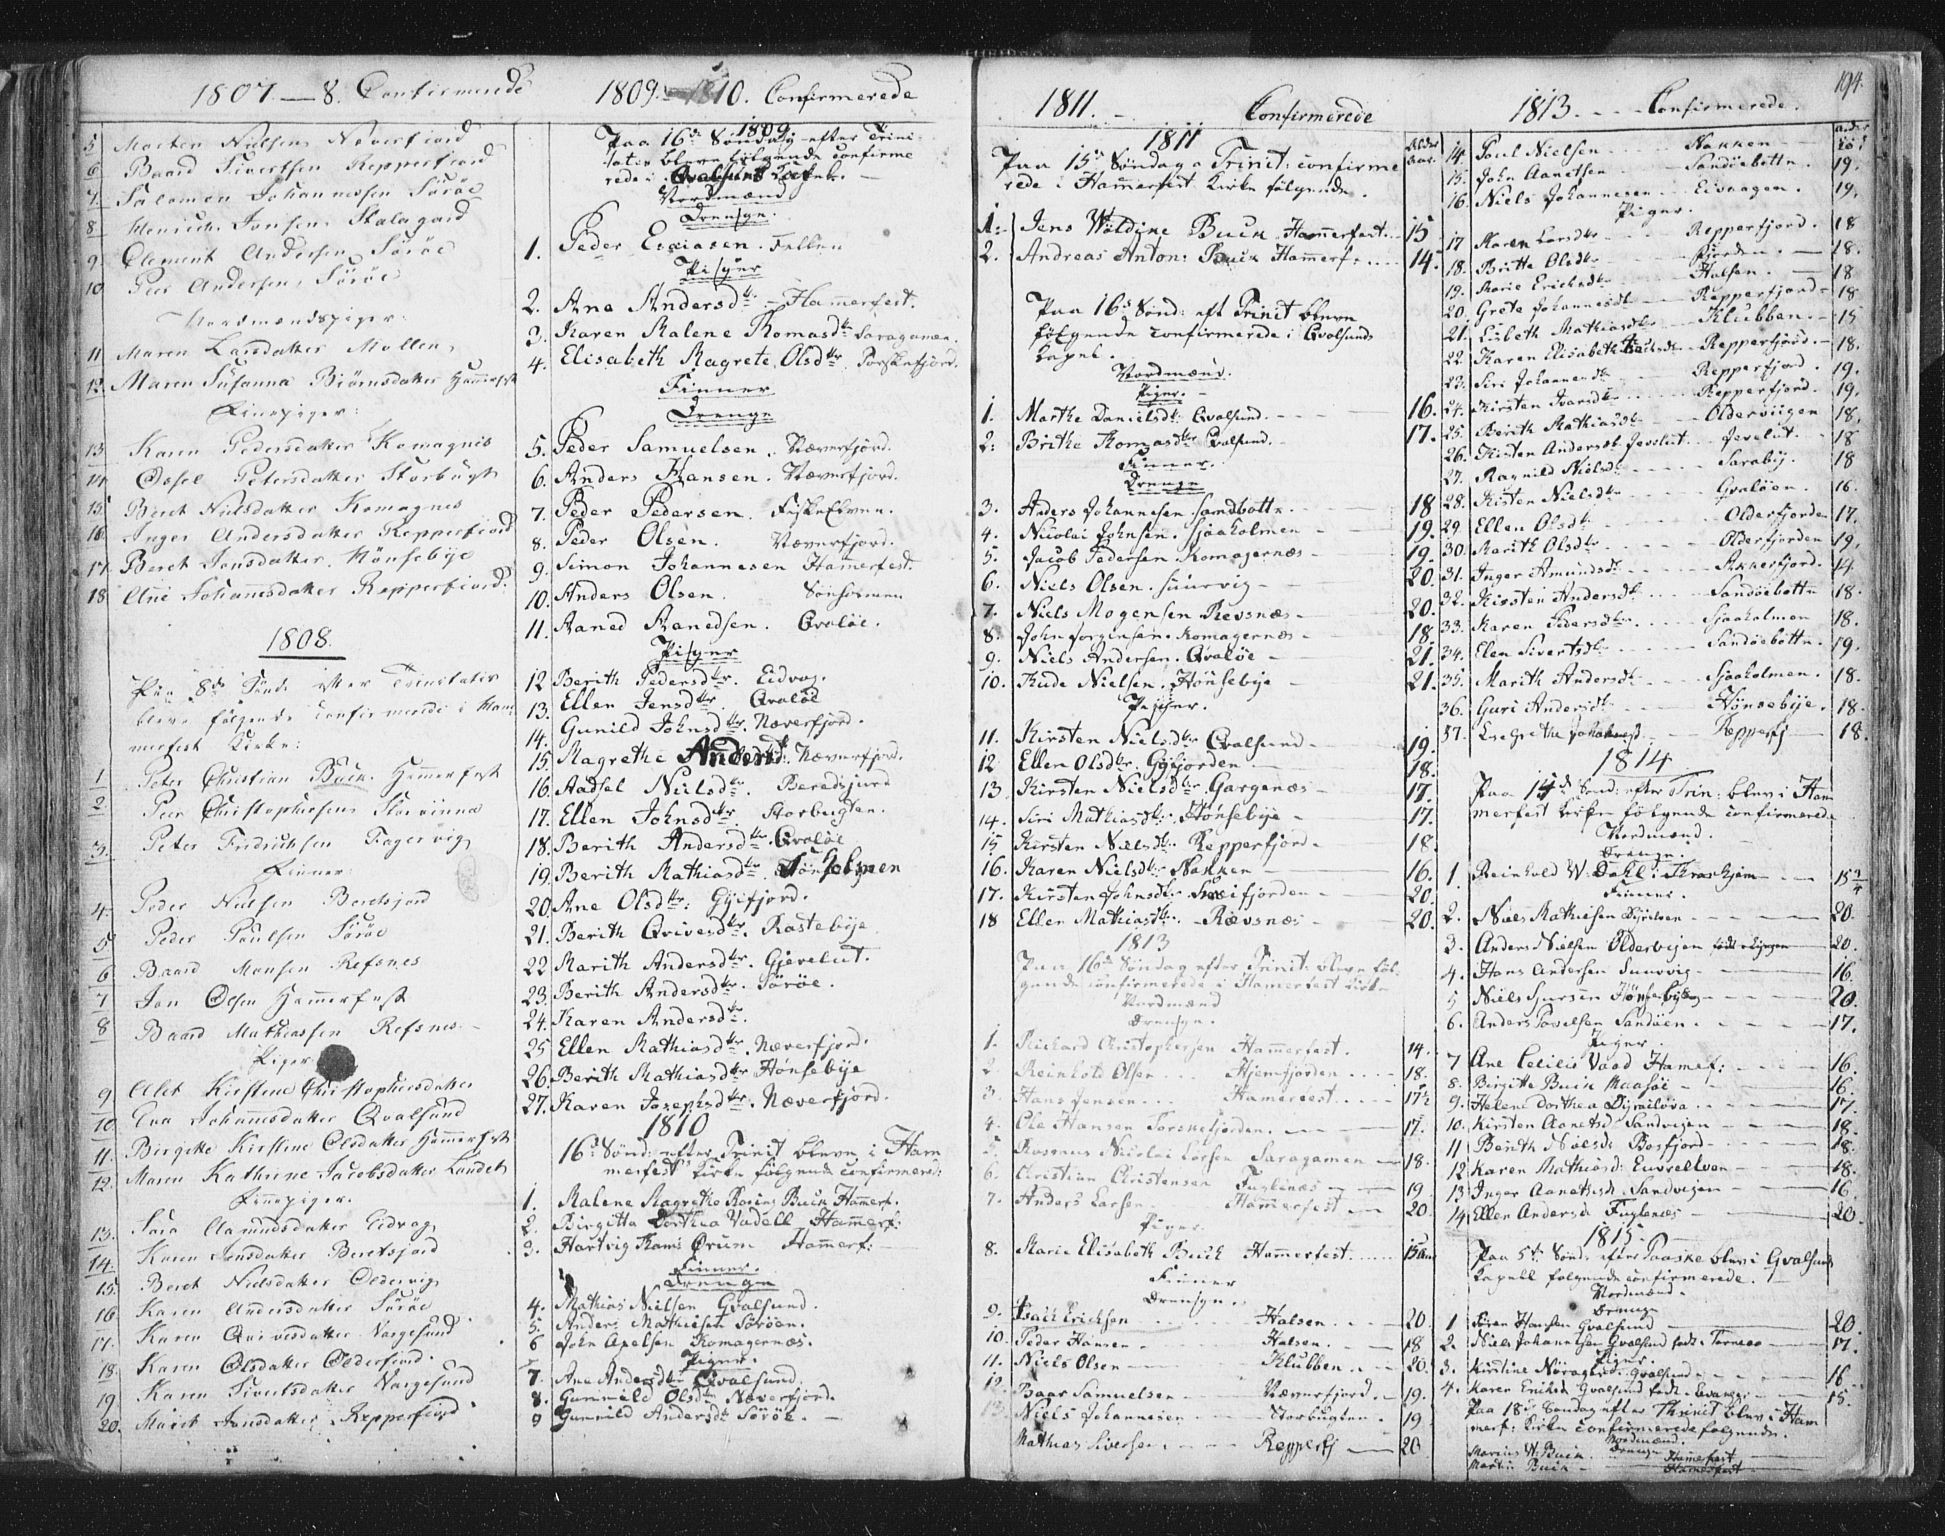 1807. — 8. Confirmerede
5 Morten Nielsen Næverfiord
6 Baard Sivertsen Repperfiord
7. Salomon Johannesen Sørøe
8 Henrich Jonsen Skalagard
9. Clement Andersen Sørøe
10 Peer Andersen, Sørøe
Nordmændspiger:
11 Maren Larsdatter Mollen,
12. Maren Susanna Biørnsdatter Hammerfest
Finnepiger:
13 Karen Pedersdatter Komagnis
14 Ossel Petersdatter Storbugt
15. Beret Nielsdatter Komagnes
16. Inger Andersdatter Repperfiord
17. Beret Jonsdatter, Hönsebÿe
18 Ane Johannesdatter Repperfiord.
1808.
Paa 8de Sønd: efter Trinitatis
bleve følgende confirmerede i Ham
merfest Kirke:
1 Peter Christian Buck. Hammerfest
2 Peer Christophersen
3. Peter Fredrichsen Fagervig
Finner:
4. Peder Nielsen Beretsjord
5 Peder Poulsen Sørøe
6 Baard Monsen Refsnes
7 Jon Olsen Hammerfest
8 Baard Mathiassen Refsnes. -
Piger
9 Alet Kirstine Christophersdatter
10 Eva Johannesdatter Qvalsund
11. Birgitte Kirstine Olsdatter Hammerfest
12. Maren Kathrine Jacobsdatter
Finnepiger.
13. Sara Aamundsdatter Eidvog
14. Karen Jonsdatter Beretsjord
15. Beret Nielsdatter Oldervig
16 Karen Andersdatter Sørøe
17. Karen Qvivesdatter Vargesund
18. Karen Olsdatter Olderfiord.
19 Karen Sivertsdatter Vargesund
20. Marit Jonsdatter, Repperfiord
1809. - 1810. Confirmerede
1809
Paa 16de Søndag efter Trini
tatis bleve følgende confirme
rede i Qvalsund Capel. —
Nordmænd
Drenge.
1. Peder Esaiasen. Fellen
Piger
2. Ane Andersdtr. - Hamerfest.
3. Karen Malene Thomasdtr Saragamen.
4. Elisabeth Magrete Olsdtr. Torskefjord.
Finner
Drenge
5. Peder Samuelsen. Næverfjord.
6. Anders Hansen. Næverfjord.
7. Peder Pedersen. FiskeElven.
8. Peder Olsen. Næverfjord.
9. Simon Johannesen Hamerfest.
10. Anders Olsen.
11. Aaned Aanedsen. Qvaløe.
Piger
12 Berith Pedersdtr. Eidvog.
13. Ellen Jensdtr. Qvaløe
14. Gunild Johnsdtr. Næverfjord.
15 Magrethe Andersdt: Næverfjord.
16. Aadsel Nielsdtr. Beredsjord
17. Ellen Johnsdtr. Storbugten.
18. Berith Andersdtr. Qvaløe
19. Berith Mathiasdtr.
20. Ane Olsdtr: Gÿifjord.
21. Berith Qvivesdtr. Rastebÿe
22 Marith Andersdtr. Gjevelut.
23. Berith Andersdtr. Sørøe.
24. Karen Andersdtr.
25 Ellen Mathiasdtr. Næverfjord.
26. Berith Mathiasdtr Hönsebÿe
27. Karen Josephsdtr. Næverfjord.
1810
16de Sønd: efter Trinit bleve i Ham
merfest Kirke følgende confirmered:
1. Malene Magrethe Rosing Buck Hamerf.
2. Birgitta Dorthea Vadell Hamerf:
3. Hartvig Kami Ørum Hamerf: -
Finner.
Drenge
4. Mathias Nielsen Qvalsund.
5. Anders Mathiesen Sørøen.
6 John Apelsen Komagernæs.
Piger.
7. Ane Andersdtr Qvalsund.
8. Gunnild Olsdtr Næverfjord.
9 Gunnild Andersdt Sørøe. —
1811. - Confirmerede
1811
Paa 15de Søndag a Trinit: confirme
rede i Hammerfest Kirke følgende.
1: Jens Wöldike Buck. Hammerfest.. 15
2. Andreas Anton: Buck Hammerf. .... 14.
Paa 16de Sønd: eft Trinit bleve
følgende confirmerede i Qvalsunds
Capel.
Nordmænd.
Piger. -
1. Marthe Danielsdt: Qvalsund. - - - 16.
2: Brithe Thomasdtr Qvalsund. - - 17.
Finner.
Drenge
3. Anders Johannesen Sandbottn. 18
4. Nicolai Johnsen. Sjaaholmen - 19.
5. Jacob Pedersen. Komagernæs - 19.
6. Niels Olsen. suurvig - - 20.
7. Niels Mogensen Revsnæs - 20.
8. John Jørgensen. Komagernæs - 18.
9. Niels Andersen. Qvaløe - 21.
10. Rude Nielsen. Hönsebÿe - 21.
Piger.
11. Kirsten Nielsdtr Qvalsund - 19.
12 Ellen Olsdtr. Gÿifjorden - 18.
13. Kirsten Nielsdtr. Gargenæs - 17.
14. Siri Mathiasdtr. Hönsebÿe - 17.
15 Kirsten Nielsdtr. Repperfjord. - 18.
16. Karen Nielsdtr. Nakken - 16.
17. Kirsten Johnsdtr. - 20.
18 Ellen Mathiasdtr. - Rævsnæs 20.
1813
Paa 16de Søndag efter Trinit: bleve føl
gende confirmerede i Hamerfest Kirke
Nordmænd
Drenge.
1. Richard Christophersen Hammerfest. 14.
2 Reinholt Olsen .... Hjemfjorden .... 18.
3. Hans Jensen ... Hamerfest ..... 17½
4. Ole Hansen Torskefjorden. — — 17.
5. Rasmus Nicolai Larsen Saragamen — 18.
6. Christian Christensen Fuglenæs — — 19
7. Anders Larsen Hammerfest — 20
Piger.
8. Marie Elisabeth Buck Hammerfest .... 15
Finner
Drenge.
9. Isach Erichsen Halsen .... 20.
10. Peder Hansen .. Halsen. .. 18
11. Niels Olsen — Klubben. — 20.
12. Baar Samuelsen — Næverfjord. - 19.
13. Niels Johannesen — Storbugten. 19
Mathias Siversen. - - Repperfj — 20
1813. - - - Confirmerede. 194.
14. Poul Nielsen .... Nakken — 20
15. John Aanetsen — Sandöebottn. 19.
16. Niels Johannesen — Eivaagen. 19.
Piger.
17 Karen Larsdtr Repperfjord. 18
18. Britte Olsdtr Fjorden — 18.
19. Marie Erichsdtr Halsen. — 18
20. Grete Johannesdtr — Repperfjord - 18
21. Lisbeth Mathiasdtr — Klubben — 15
22. Karen Elisabeth — Repperfjord. — 18.
23. Siri Johannesdtr — Repperfjord. 19.
24. Kirsten Ivarsdtr Repperfjord. 19.
25. Berith Mathiasdtr — Oldervigen 18.
26. Kirsten Andersdt Jevelut. — Jevelut. 18
27. Ragnild Nielsdt Sarabÿ. 18
28. Kirsten Nielsdtr — Qvaløen. 16.
29. Ellen Olsdtr Olderfjorden 17.
30. Marith Olsdtr Olderfjorden 19.
31. Inger Amundsdt Akkerfjord. 14
32. Kirsten Andersdtr ... Sandöebottn 18.
33. Karen Pedersdtr ... Sjaaholmen 18.
34. Elen Sivertsdtr Sandöebottn. 19.
35. Marith Andersdtr Sjaaholmen. 18.
36. Guri Andersdt — Hönsebÿe. 18.
37. Johannesd — Repperfj — 18.
1814
Paa 14de Sønd: efter Trin: blev i Ham
merfest Kirke følgende confirmerede
Nordmænd.
Drenge.
1 Reinhold W. Dahl: Thronhjem — .. 15¾
Finner.
2. Niels Mathiesen — — 20.
3. Anders Nielsen Oldervigen født i Lyngen — 20.
4. Hans Andersen Suurvig — 16.
5 Niels Hönsebÿe — 20.
6. Anders Povelsen Sandöen. — — 17.
Piger
7 Ane Cecilie Vaad Hamef: — 16.
8. Birgitte Buck Maasöe — 16.
9. Helene Dorthea — 17.
10. Kirsten Aanetsd Sandvigen — 18.
11 Berith Nielsdt Bosfjord — 18.
12 Karen Mathiasd: — 18.
13 Inger Aanetsdt. Sandvigen — 16
14. Ellen Andersd Fuglenæs — 20.
1815.
Paa 5te Sønd. efter Paaske blev i Qvalsund
Kapell følgende confirmerede. —
Nordmænd.
Drenge
1 Søren Hansen Qvalsund — 20.
2. Niels Johannesen Qvalsund født i Torneao — 17.
Piger.
3. Kirstine Qvalsund — 16
4. Karen Eriksd Qvalsund født — 15.
Paa 18de Søndag efter Thrinit blev i Ham
merf: Kirke confirmerede følgende.
Nordmænd.
Drenge
Marius W. Buck .. Hamerfest
Martin Buck — Hamerfest